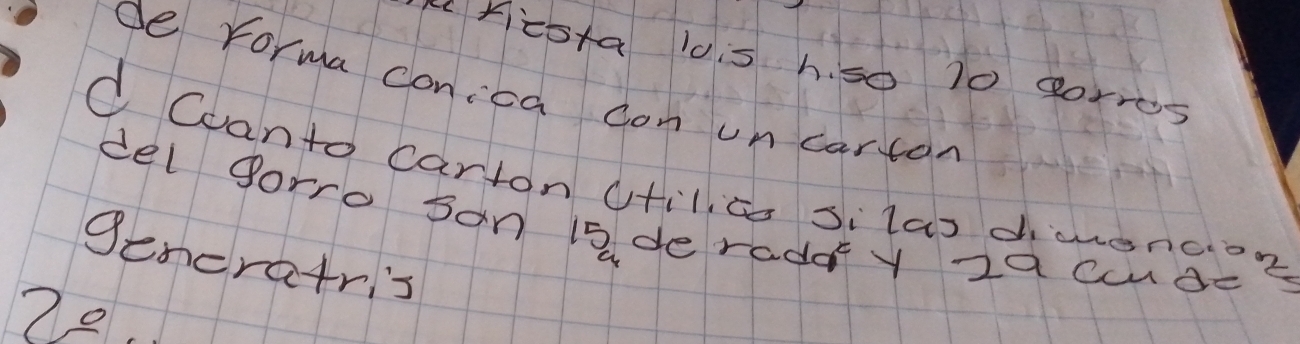 fiesta luis hiso 10 gorros
de forma conica con un carton
d Cuanto carton utilico si las dimenciones
del gorro son 15 de radio y 29 cm de
generatris
2º